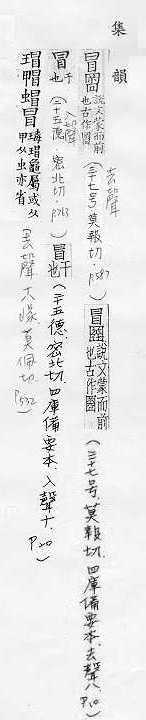 集韻
冒𡇒 說文蒙而前也古作𡇒 (三十七号.莫報切.p587)
去聲
冒𡇒 說文蒙而前也古作𡇒 (三十七号.莫報切.四庫備要本.去聲八.P.10)
冒 干也 (二十五德.密北切.p763)
入聲
冒 干也 (二十五德.密北切.四庫備要本.入聲十.P.20)
瑁𤲰蝐冒 瑇瑁龜屬或从甲从虫亦省 (去聲 十八隊.莫佩切.P532)